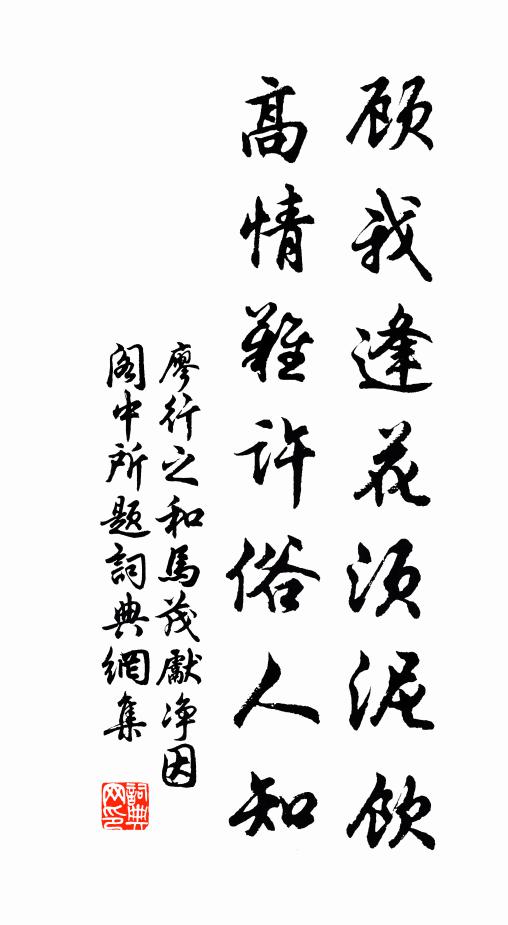 顾我逢花须泥饮
高情難许俗人知
廖行之和馬茂獻净因
阁中所题詞典網集
詞典网印